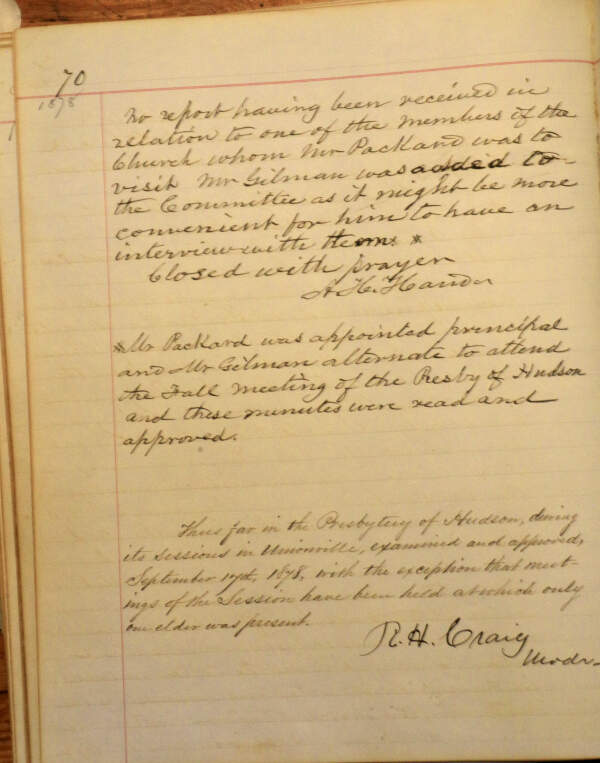 70
1878
No report having been received in
relation to one of the members of the
Church whom Mr Packard was to
visit Mr Gilman was added to
the Committee as it might be more
convenient for him to have an
interview with them *
Closed with prayer
A. H. Hand
*Mr Packard was appointed principal
and Mr Gilman alternate to attend
the Fall meeting of the Presby of Hudson
and these minutes were read and
approved.
Thus far in the Presbytery of Hudson, during
its sessions in Unionville, examined and approved,
September 1878, with the exception that meet-
ings of the Session have been held at which only
one elder was present.
R. H. Craig
Modr